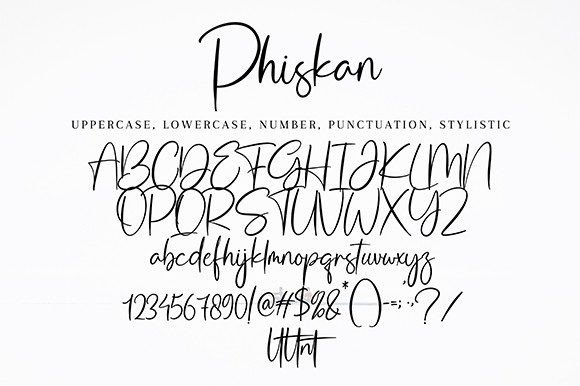 Phiskan
UPPERCASE, LOWERCASE, NUMBER, PUNCTUATION, STYLISTIC
ABCDEFGHIJKLMN
OPQRSTUVWXYZ
abcdefhijklmnopqrstuvwxyz
1234567890!@#$%&*()-=;:,.?/